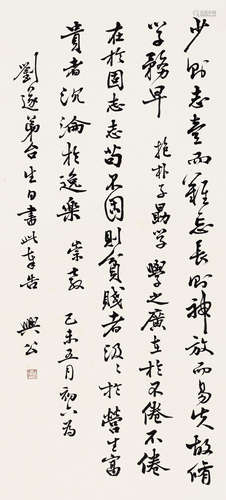 少則志壹而難忘長則神放而易失故脩
學務早 抱朴子勗學 學之廣在於不倦不倦
在於固志志苟不固則貧賤者汲々於營生富
貴者沉淪於逸樂 崇教 己未五月初六為
劉遂弟台生日書此奉告 興公